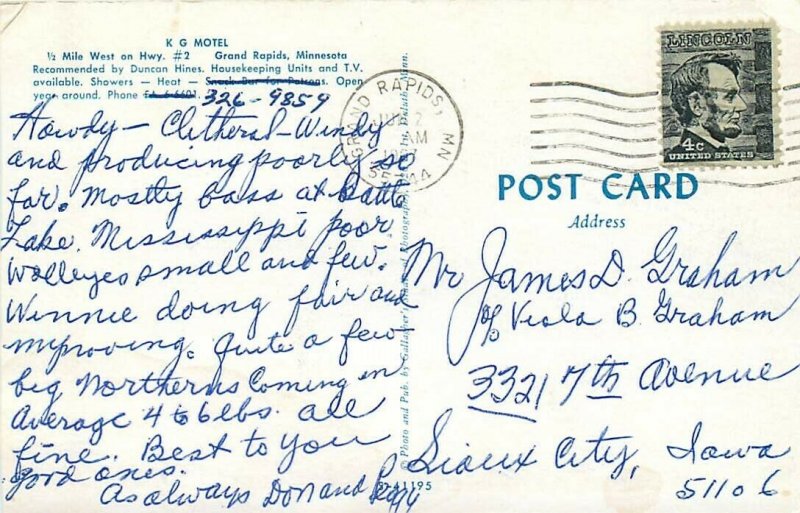 K G MOTEL
½ Mile West on Hwy. #2 Grand Rapids, Minnesota
Recommended by Duncan Hines. Housekeeping Units and T.V.
available. Showers — Heat — Snack Bar for Patrons. Open
year around. Phone FA 6-6601.
326-9859
Howdy - Clitheral - Windy
and producing poorly so
far. Mostly bass at Battle
Lake. Mississippi poor
Walleyes small and few.
Winnie doing fair and
improving. Quite a few
big Northerns Coming in
Average 4 to 6 lbs. all
fine. Best to you
good ones.
As always Don and Peggy
© Photo and Pub. by Gallagher's Photography, Duluth, Minn.
D-41195
GRAND RAPIDS, MN
JUL 2
AM
LINCOLN
4c
UNITED STATES
POST CARD
Address
Mr James D. Graham
c/o Viola B. Graham
3321 7th Avenue
Sioux City, Iowa
51106